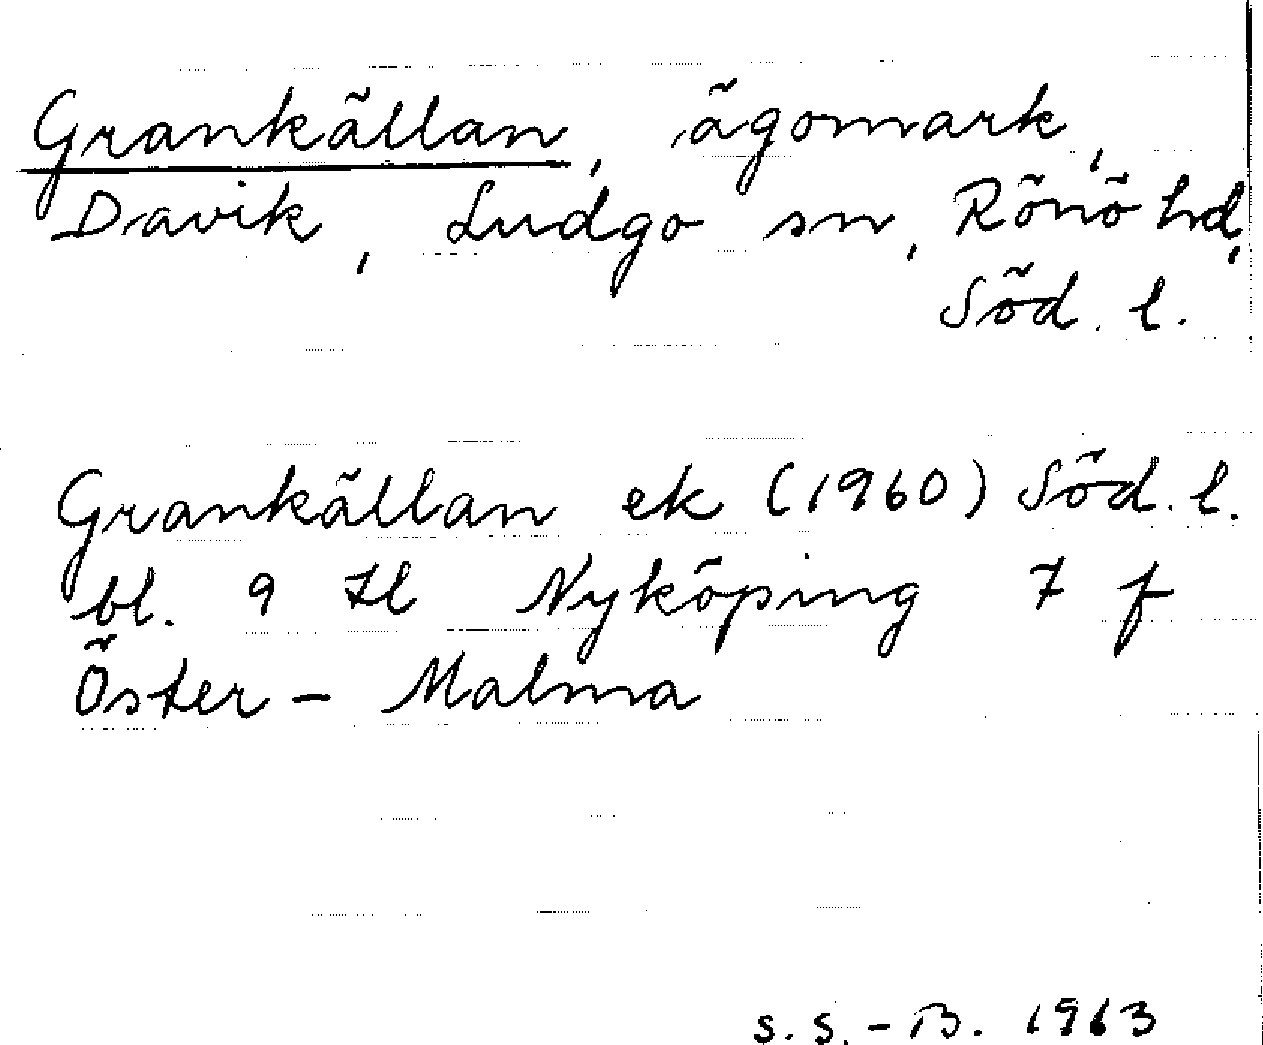 Grankällan, ägomark,
Davik, Ludgo sn, Rönö hd,
Söd. l.
Grankällan ek (1960) Söd. l.
bl. 9 H Nyköping 7 f
Öster-Malma
S.S.-B. 1963